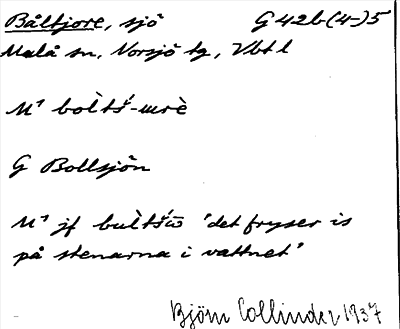 Båltjore, sjö G 42b(4-)5
Malå sn, Norsjö tg, Vbt l
M¹ bòltś-ɯrè
G Bollsjön
M¹ jf bùltśɯ̄ 'det fryser is
på stenarna i vattnet'
Björn Collinder 1937